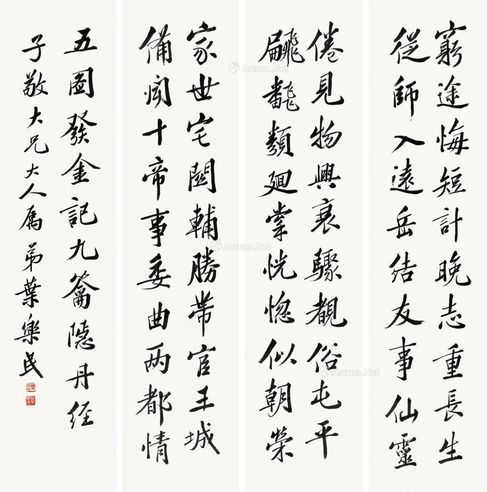 窮途悔短計晚志重長生
從師入遠岳結友事仙靈
倦見物興衰驟覩俗屯平
翩飜類迴掌恍惚似朝榮
家世宅關輔勝帶官王城
備聞十帝事委曲两都情
五圖發金記九籥隱丹經
子敬大兄大人屬 弟葉樂民
Artron.Net